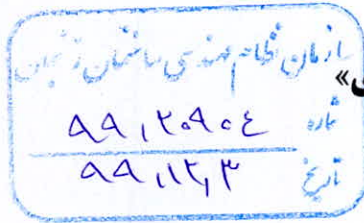 سازمان نظام مهندسی ساختمان زنجان
»
شماره ۹۹,۲۰۹۰۴
تاریخ ۹۹,۱۲,۳